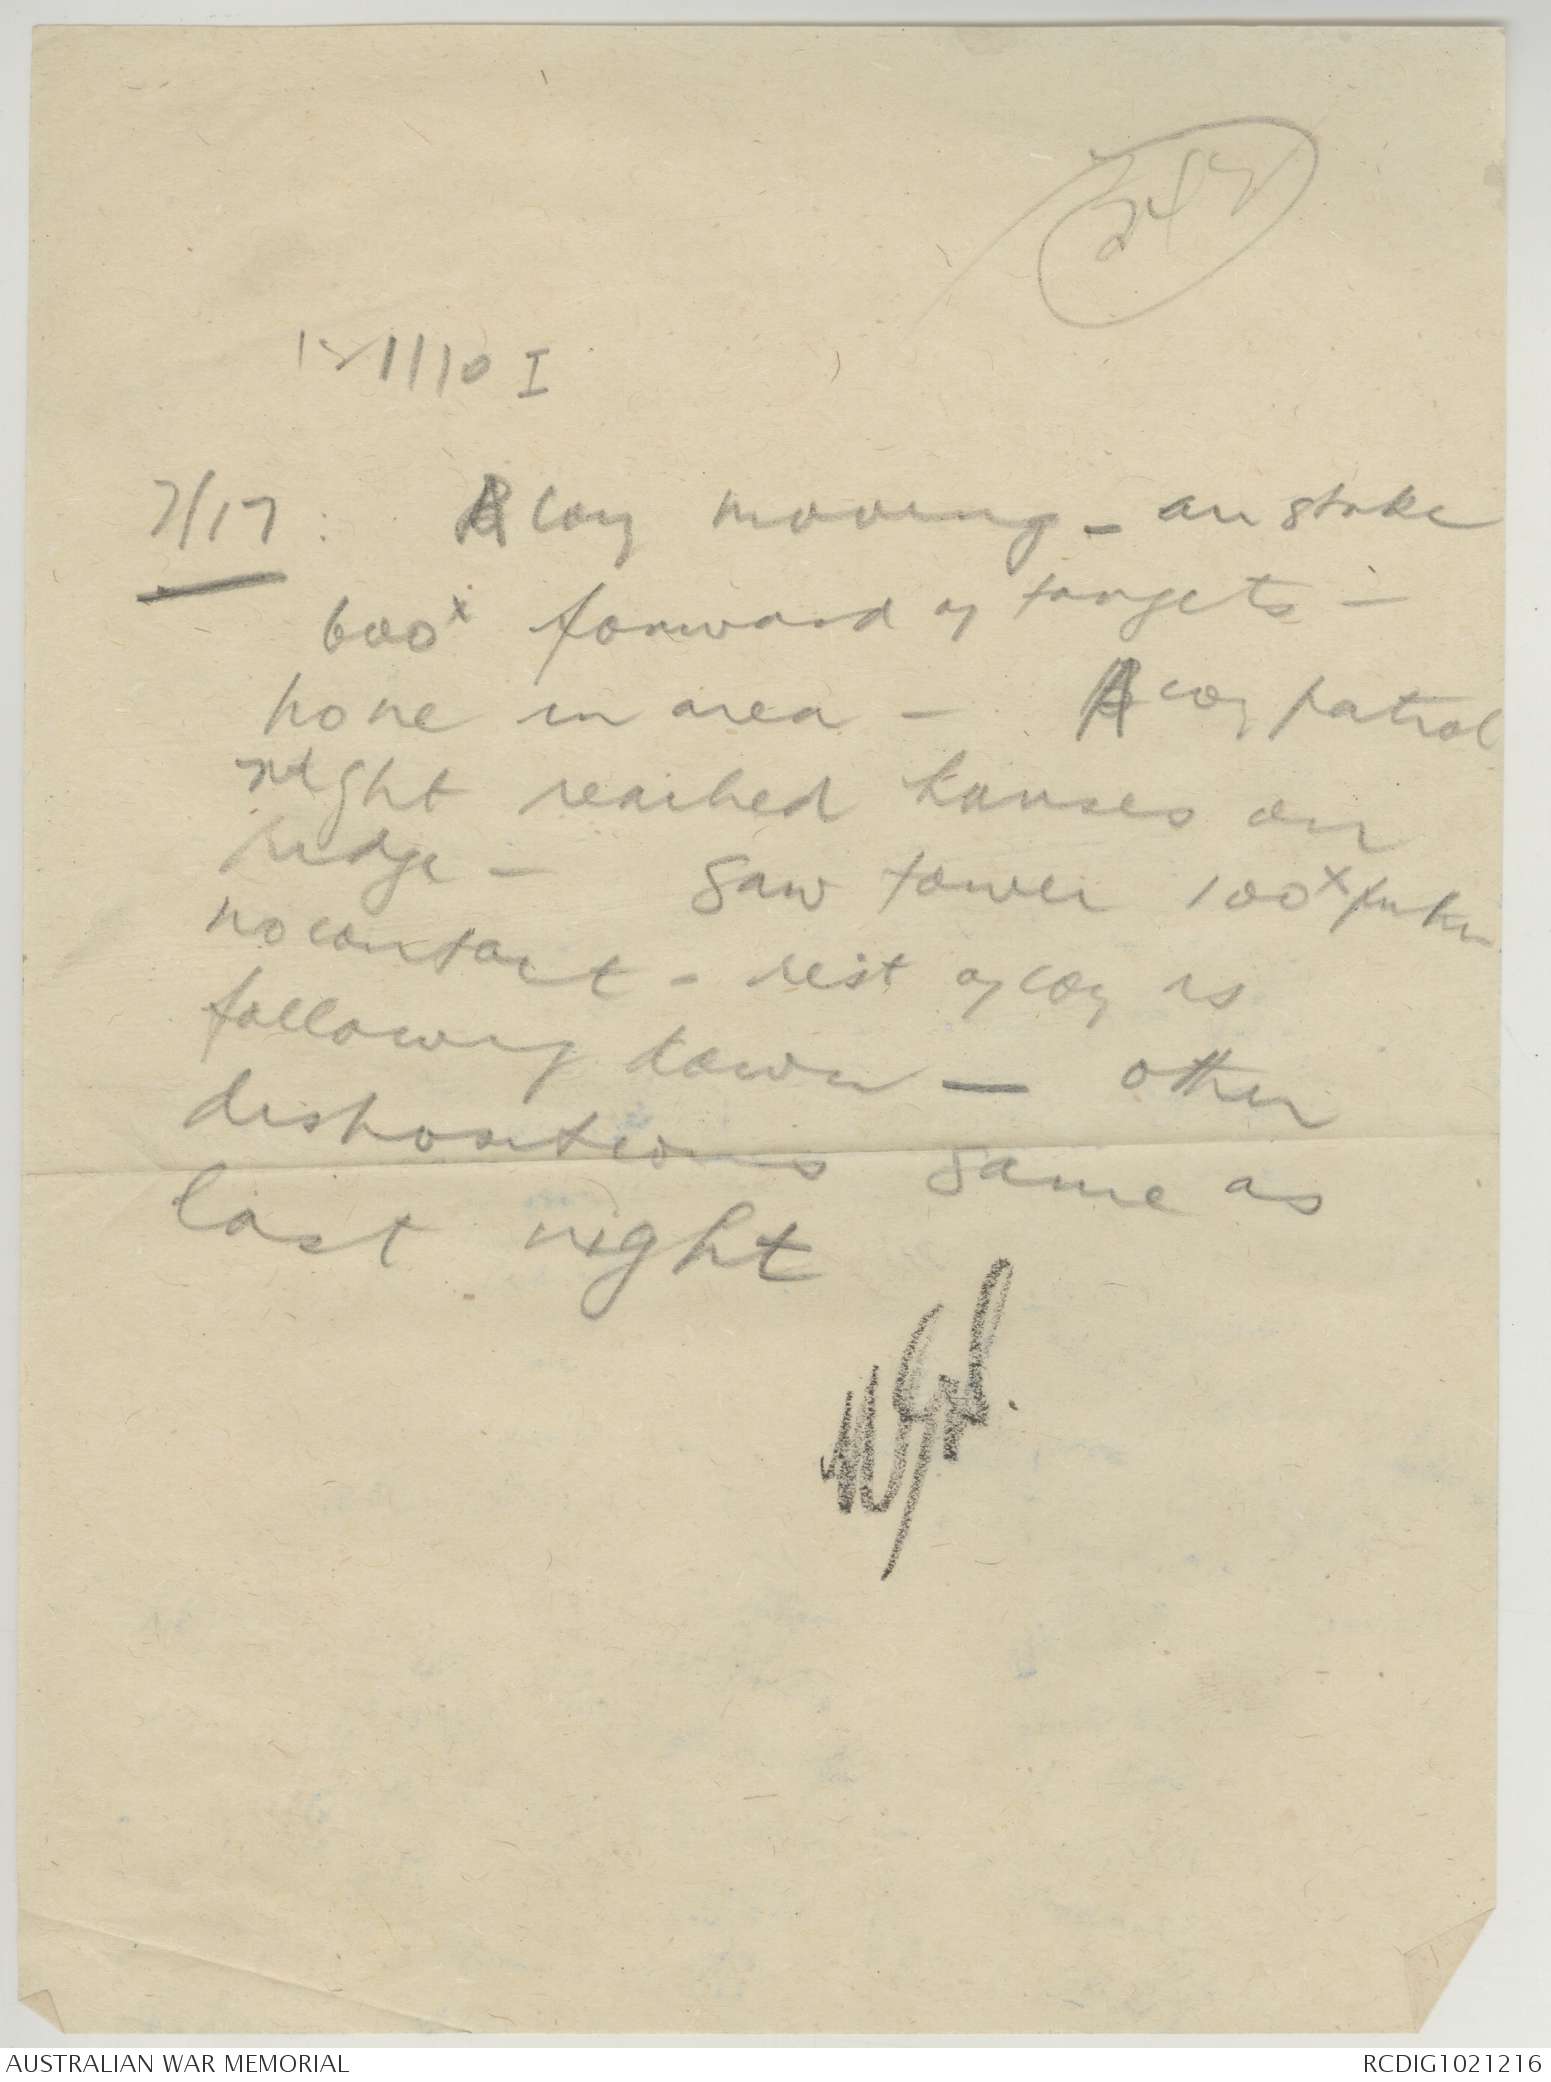 7/17 : A Coy moving - air stroke
600x forward of targets -
none in area - A coy patrol
right reached houses on
ridge - saw tower 100x further
no contact - rest of coy is
following down - other
dispositions same as
last night
AUSTRALIAN WAR MEMORIAL
RCDIG1021216